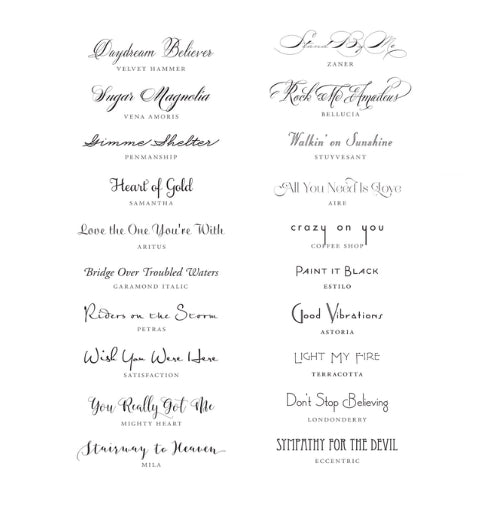 Daydream Believer
VELVET HAMMER
Sugar Magnolia
VENA AMORIS
Gimme Shelter
PENMANSHIP
Heart of Gold
SAMANTHA
Love the One You're With
ARITUS
Bridge Over Troubled Waters
GARAMOND ITALIC
Riders on the Storm
PETRAS
Wish You Were Here
SATISFACTION
You Really Got Me
MIGHTY HEART
Stairway to Heaven
MILA
Stand By Me
ZANER
Rock Me Amadeus
BELLUCIA
Walkin' on Sunshine
STUYVESANT
All You Need Is Love
AIRE
crazy on you
COFFEE SHOP
PAINT IT BLACK
ESTILO
Good Vibrations
ASTORIA
LIGHT MY FIRE
TERRACOTTA
Don't Stop Believing
LONDONDERRY
SYMPATHY FOR THE DEVIL
ECCENTRIC